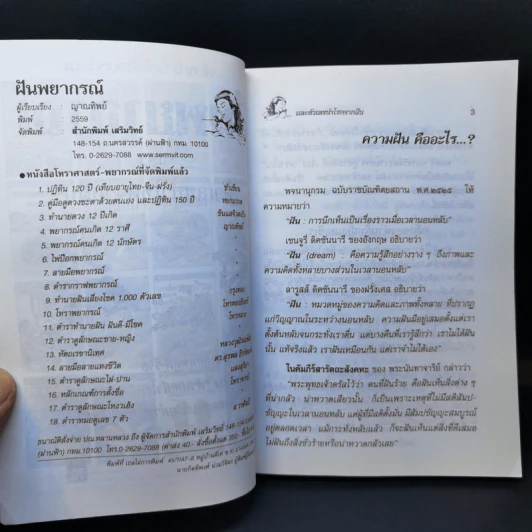 ฝันพยากรณ์
ผู้เรียบเรียง : ญาณทิพย์
พิมพ์ : 2559
จัดพิมพ์ : สำนักพิมพ์ เสริมวิทย์
148-154 ถ.นครสวรรค์ (ผ่านฟ้า) กทม. 10100
โทร. 0-2629-7088 www.sermvit.com
●หนังสือโหราศาสตร์-พยากรณ์ที่จัดพิมพ์แล้ว
1. ปฏิทิน 120 ปี (เทียบอายุไทย-จีน-ฝรั่ง)
2. คู่มือดูดวงชะตาด้วยตนเอง และปฏิทิน 150 ปี
3. ทำนายดวง 12 ปีเกิด
4. พยากรณ์คนเกิด 12 ราศี ญาณทิพย์
5. พยากรณ์คนเกิด 12 นักษัตร "
6. ไพ่ป๊อกพยากรณ์ "
7. ลายมือพยากรณ์ "
8. ตำรากราฟพยากรณ์
9. ทำนายฝันเสี่ยงโชค 1,000 ตัวเลข
10. โหราพยากรณ์
11. ตำราทำนายฝัน ฝันดี-มีโชค
12. ตำราดูลักษณะชาย-หญิง
13. หัตถเรขานิเทศ
14. ลายมือลายแทงชีวิต
15. ตำราดูลักษณะไฝ-ปาน
16. หลักเกณฑ์การตั้งชื่อ
17. ตำราดูลักษณะโหงวเฮ้ง
18. ตำราหมอดูเลข 7 ตัว
ธนาณัติสั่งจ่าย ปณ.หลานหลวง ถึง ผู้จัดการสำนักพิมพ์ เสริมวิทย์ 148-154
(ผ่านฟ้า) กทม. 10100 โทร. 0-2629-7088
และตัวเลขนำโชคจากฝัน 3
ความฝัน คืออะไร...?
พจนานุกรม ฉบับราชบัณฑิตยสถาน พ.ศ.๒๕๒๕ ให้
ความหมายว่า
"ฝัน : การนึกเห็นเป็นเรื่องราวเมื่อเวลานอนหลับ"
เชนจูรี่ ดิคชันนารี ของอังกฤษ อธิบายว่า
"ฝัน (dream) : คือความรู้สึกอย่างราง ๆ ถึงภาพและ
ความคิดทั้งหลายบางส่วนในเวลานอนหลับ"
ลารูสส์ ดิคชันนารี ของฝรั่งเศส อธิบายว่า
"ฝัน : หมวดหมู่ของความคิดและภาพทั้งหลาย ที่ปรากฏ
แก่วิญญาณในระหว่างนอนหลับ ความฝันมีอยู่เสมอตั้งแต่เรา
ตั้งต้นหลับจนกระทั่งเราตื่น แต่บางคืนที่เรารู้สึกว่า เราไม่ได้ฝัน
นั้น แท้จริงแล้ว เราฝันเหมือนกัน แต่เราจำไม่ได้เอง"
ในคัมภีร์สารัตถะสังคหะ ของ พระนันทาจารีย์ กล่าวว่า
"พระพุทธเจ้าตรัสไว้ว่า คนที่ฝันร้าย คือฝันเห็นสิ่งต่าง ๆ
ที่น่ากลัว น่าหวาดเสียวนั้น ก็เป็นเพราะเหตุที่ไม่มีสติสัมป-
ชัญญะในเวลานอนหลับ แต่ผู้ที่มีสติตั้งมั่น มีสัมปชัญญะสมบูรณ์
อยู่ตลอดเวลา แม้กระทั่งหลับแล้ว ก็จะฝันแต่สิ่งที่ดีเสมอ
ไม่ฝันถึงสิ่งชั่วร้ายหรือน่าหวาดกลัวเลย"